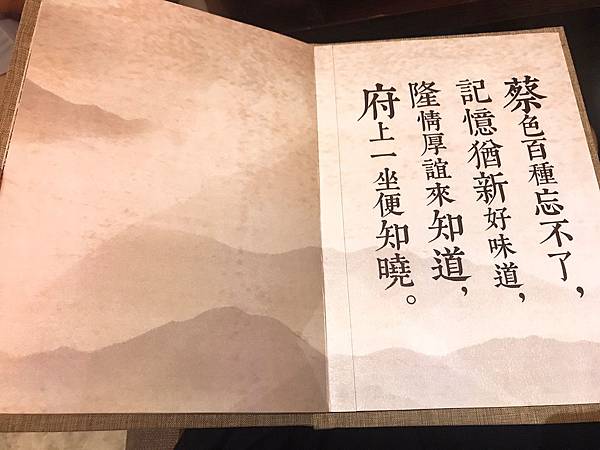 蔡色百種忘不了，
記憶猶新好味道，
隆情厚誼來知道，
府上一坐便知曉。